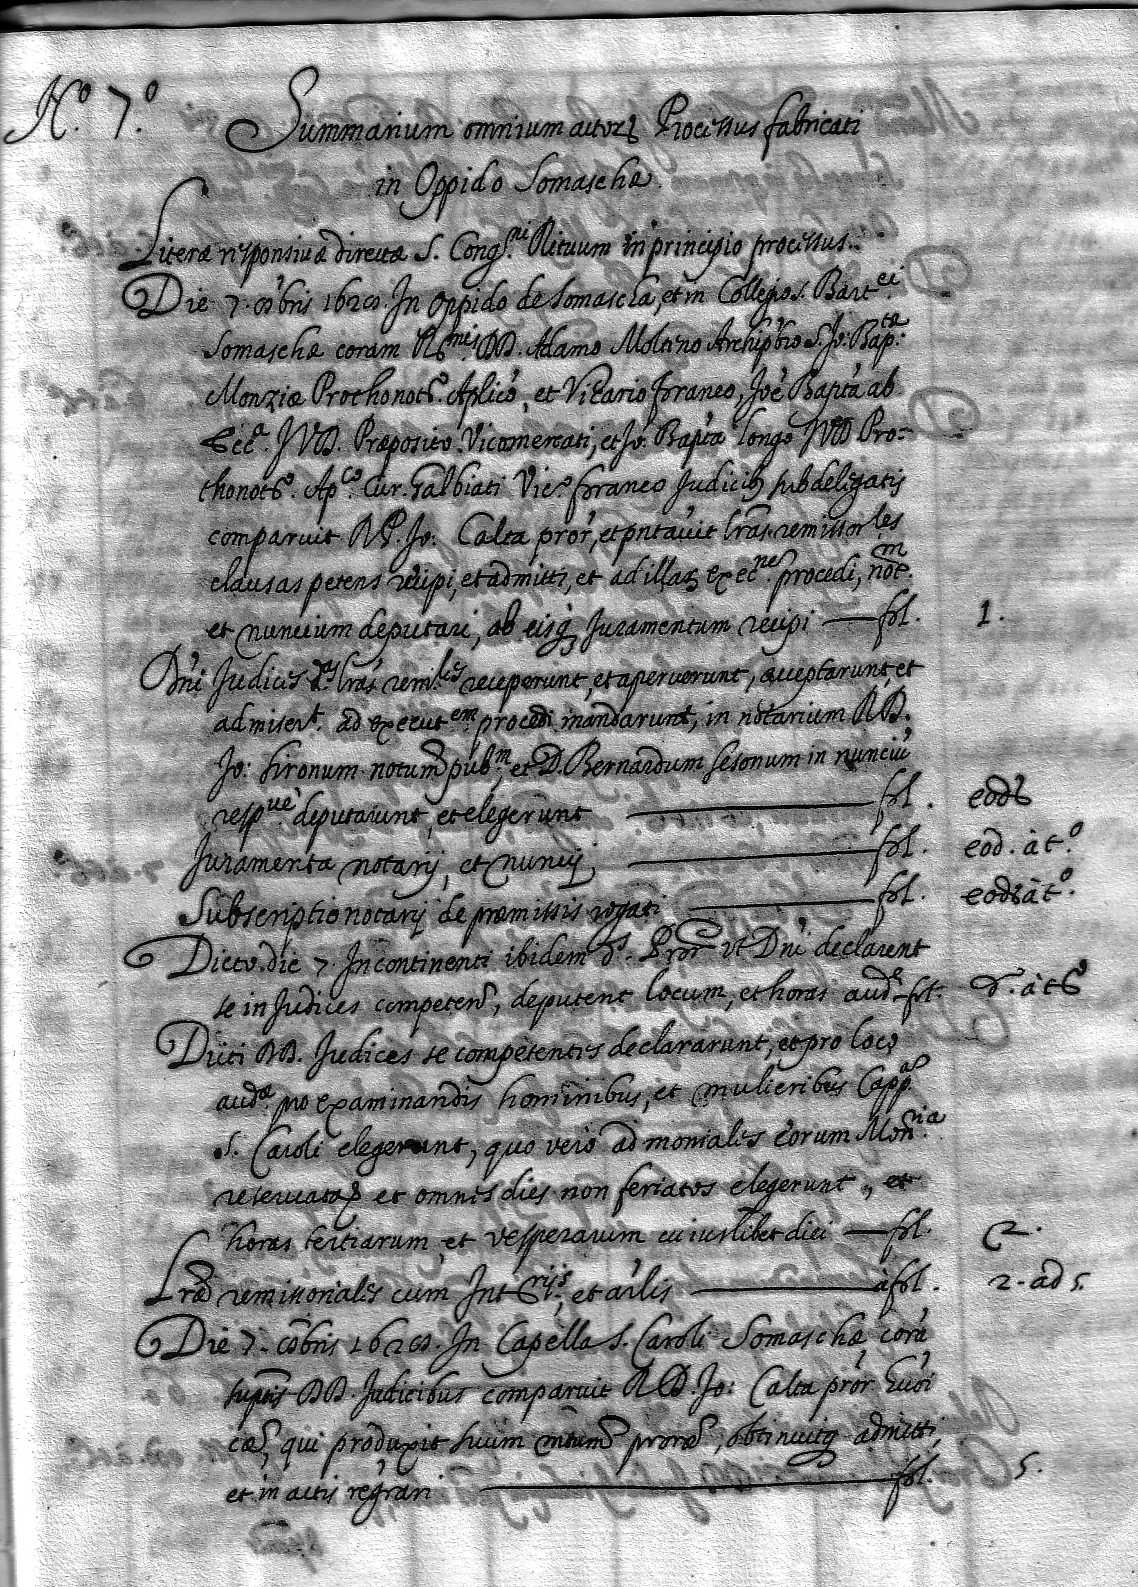 N.º 7.º
Summarium omnium actorz Processus fabricati
in Oppido Somaschæ.
Literæ responsiuæ directæ S. Cong.ni Rituum in principio processus.
Die 7. In oppido de Somascha, et in Collegio S. Bart.ei
Somaschæ coram DD. Adamo Molcino Archipbro S. Jo: Bap.tæ
Monziæ Prothonot. Aplico, et Vicario foraneo, Joe Bapta ab
JVD. Præposito Vicomercati, et Jo: Bapta longo JVD Pro-
thonot.o Ap.co Cur. Galbiati Vic.o foraneo Judicib subdelegatis
comparuit Jo: Calta pror, et pntauit lras remissor.les
clausas petens recipi, et admitti, et ad illas exec.ne procedi,
et nuncium deputari, ab eisq Juramentum recipi — fol. 1.
Dni Judices lras rem.les receperunt, et aperuerunt, acceptarunt, et
admiser.t ad execut.em procedi mandarunt, in notarium RD.
Jo: notum pub.m et D. Bernardum in nunciu
resp.ue deputarunt, et elegerunt — fol. eod
Juramenta notarij, et nuncij — fol. eod. à t.o
Subscriptio notarij de præmissis rogati — fol. eod à t.o
Dicto die 7 Incontinenti ibidem d.s Pror ut Dni declarent
se in Judices competen, deputent locum, et horas aud.æ fol. d. à t.o
Dicti DD. Judices se competentes declararunt, et pro loco
aud.æ pro examinandis hominibus, et mulieribus Capp.as
S. Caroli elegerunt, quo vero ad moniales eorum Mon.ria
reseruata et omnes dies non feriatos elegerunt, et
horas tertiarum et vesperarum cuiuslibet diei — fol. 2.
Lræ remissoriales cum Int.rijs, et arlis — à fol. 2. ad 5.
Die 7. In Capella S. Caroli Somaschæ, corà
suptis DD. Judicibus comparuit RD. Jo: Calta pror
cæ, qui produxit suum obtinuitq admitti,
et in actis regrari — fol. 5.